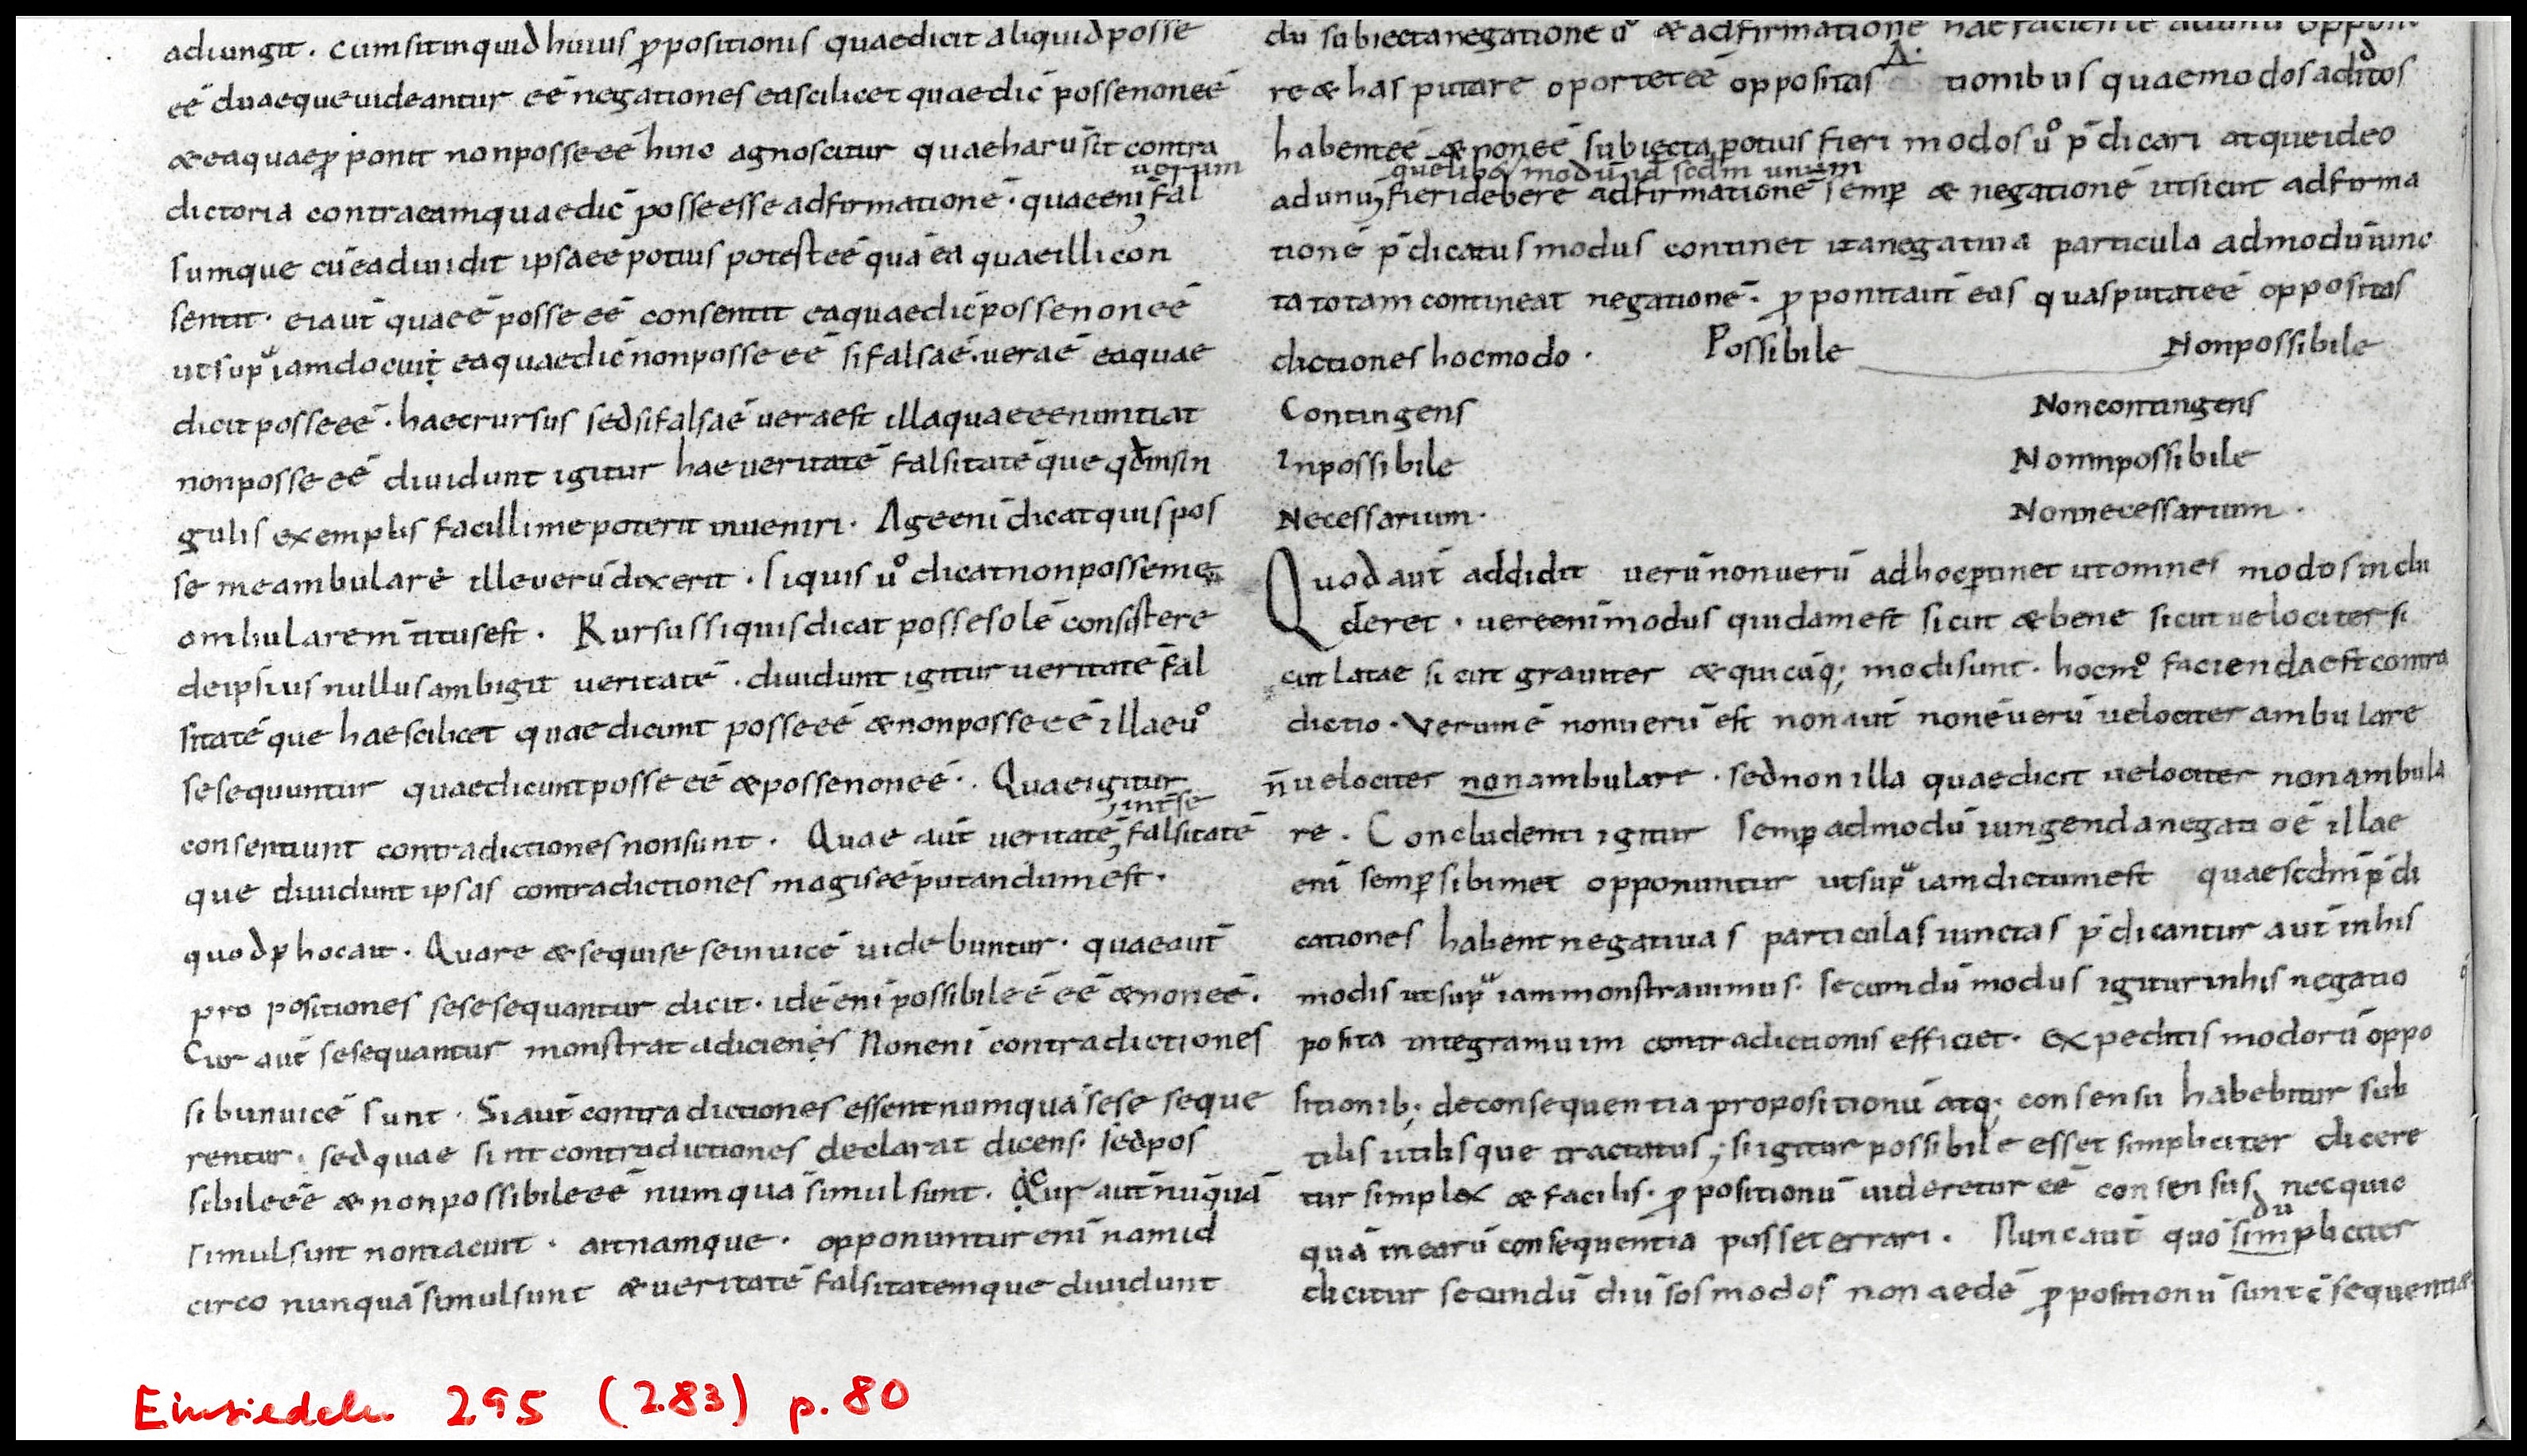 adiungit. cumsitinquid huius ꝓpositionis quaedicit aliquid posse
eē duaequeuideantur eē negationes eascilicet quaedic̄ possenoneē
&eaquaeꝓponit nonposseeē hinc agnoscitur quaeharūsit contra
uerum
dictoria contraeamquaedic̄ posseesseadfirmationē. quaeenī fal
sumque cūeadiuidit ipsaeē potius potesteē quā ea quaeillicon
sentit. eiaut̄ quaeē posseeē consentit eaquaedic̄ possenoneē
utsupͣiamdocuit eaquaedic̄nonposseeē sifalsaē. ueraē eaquae
dicit posseeē. haecrursus sedsifalsaē ueraest illaquaeeenuntiat
nonposseeē diuidunt igitur haeueritatē falsitatēque qđinsin
gulis exemplis facillimepoterit inueniri. Ageenī dicatquispos
se meambulare illeuerūdixerit. siquis ů dicatnonposseme
ambularem̄titusest. Rursussiquisdicat possesolē consistere
deipsius nullusambigit ueritatē. diuidunt igitur ueritatē fal
sitatēque haescilicet quaedicunt posseeē &nonposseeē illaeů
sesequuntur quaedicuntposseeē &possenoneē. Quaeigitur
int̄se
consentiunt contradictionesnonsunt. Quae aut̄ ueritatē falsitatē
que diuidunt ipsas contradictiones magiseēputandumest.
quodꝑhocait. Quare &sequisese inuicē uidebuntur. quaeaut̄
pro positiones sesesequantur dicit. idē enī possibileē eē &noneē.
Cur aut̄ sesequantur monstrat adiciens Nonenī contradictiones
sibiinuicē sunt. Siaut̄ contradictiones essentnumquā sese seque
rentur. sedquae sint contradictiones declarat dicens. sedpos
sibileeē &nonpossibileeē numquā simulsunt. Cur aut̄nūquā
simulsint nontacuit. aitnamque. opponuntur enī namid
circo nunquā simulsunt &ueritatē falsitatemque diuidunt
dū subiectanegatione ů &adfirmatione
re&has putare oporteteē oppositas tionibus quaemodosaditos
habenteē &noneē subiecta potius fieri modosů p̄dicari atqueideo
quēlibet modū id scdm unum
adunū fieridebere adfirmationē semꝑ & negationē utsicut adfirma
tionē p̄dicatusmodus continet itanegatiua particula admodūiunc
ta totam contineat negationē. ꝓponitaut̄ eas quasputateē oppositas
dictiones hocmodo. Possibile Nonpossibile
Contingens Noncontingens
Inpossibile Noninpossibile
Necessarium. Nonnecessarium.
Quodaut̄ addidit uerūnonuerū adhocꝑtinet utomnes modosinclu
deret. uereenīmodus quidamest sicut &bene sicut uelociter si
cut laetae sicut grauiter &quicūq; modisunt. hocm̊ faciendaestcontra
dictio. Verumē nonuerū est nonaut̄ nonēuerū uelociter ambulare
n̄uelociter nonambulare. sednon illa quaedicit uelociter nonambula
re. Concludenti igitur semꝑ admodū iungendanegatioē illae
enī semꝑsibimet opponuntur utsupͣiamdictumest quaescdm p̄di
cationes habentnegatiuas particulasiunctas p̄dicantur aut̄ inhis
modis utsupͣiammonstrauimus. secundū modus igiturinhis negatio
posita integramuim contradictionis efficiet. expeditis modorū oppo
sitionib; deconsequentia propositionū atq; consensu habebitur sub
tilis utilisque tractatus; siigitur possibile esset simpliciter dicere
tur simplex &facilis. ꝓpositionū uideretur eē consensus necquic
quā inearū consequentia posseterrari. Nuncaut̄ quo simpliciter
dicitur secundū diūsosmodos non aedē ꝓpositionū suntc̄sequentiae
Einsiedeln 295 (283) p. 80